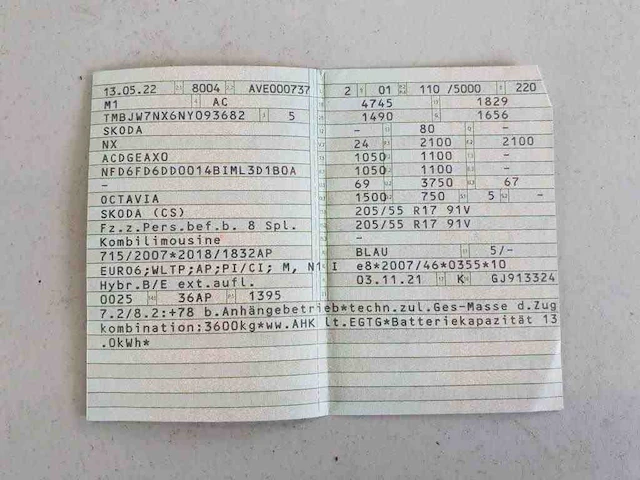 13.05.22 8004 AVE000737
M1 AC
TMBJW7NX6NY093682 5
SKODA
NX
ACDGEAX0
NFD6FD6DD0014BIML3D1B0A
-
OCTAVIA
SKODA (CS)
Fz.z.Pers.bef.b. 8 Spl.
Kombilimousine
715/2007*2018/1832AP
EURO6;WLTP;AP;PI/CI; M, N1 I
Hybr.B/E ext.aufl.
0025 36AP 1395
2 01 110 /5000 220
4745 1829
1490 1656
- 80 -
24 2100 2100
1050 1100 -
1050 1100 -
69 3750 67
1500 750 5 -
205/55 R17 91V
205/55 R17 91V
-
BLAU 5/-
e8*2007/46*0355*10
03.11.21 K GJ913324
7.2/8.2:+78 b.Anhängebetrieb*techn.zul.Ges-Masse d.Zug
kombination:3600kg*ww.AHK lt.EGTG*Batteriekapazität 13
.0kWh*